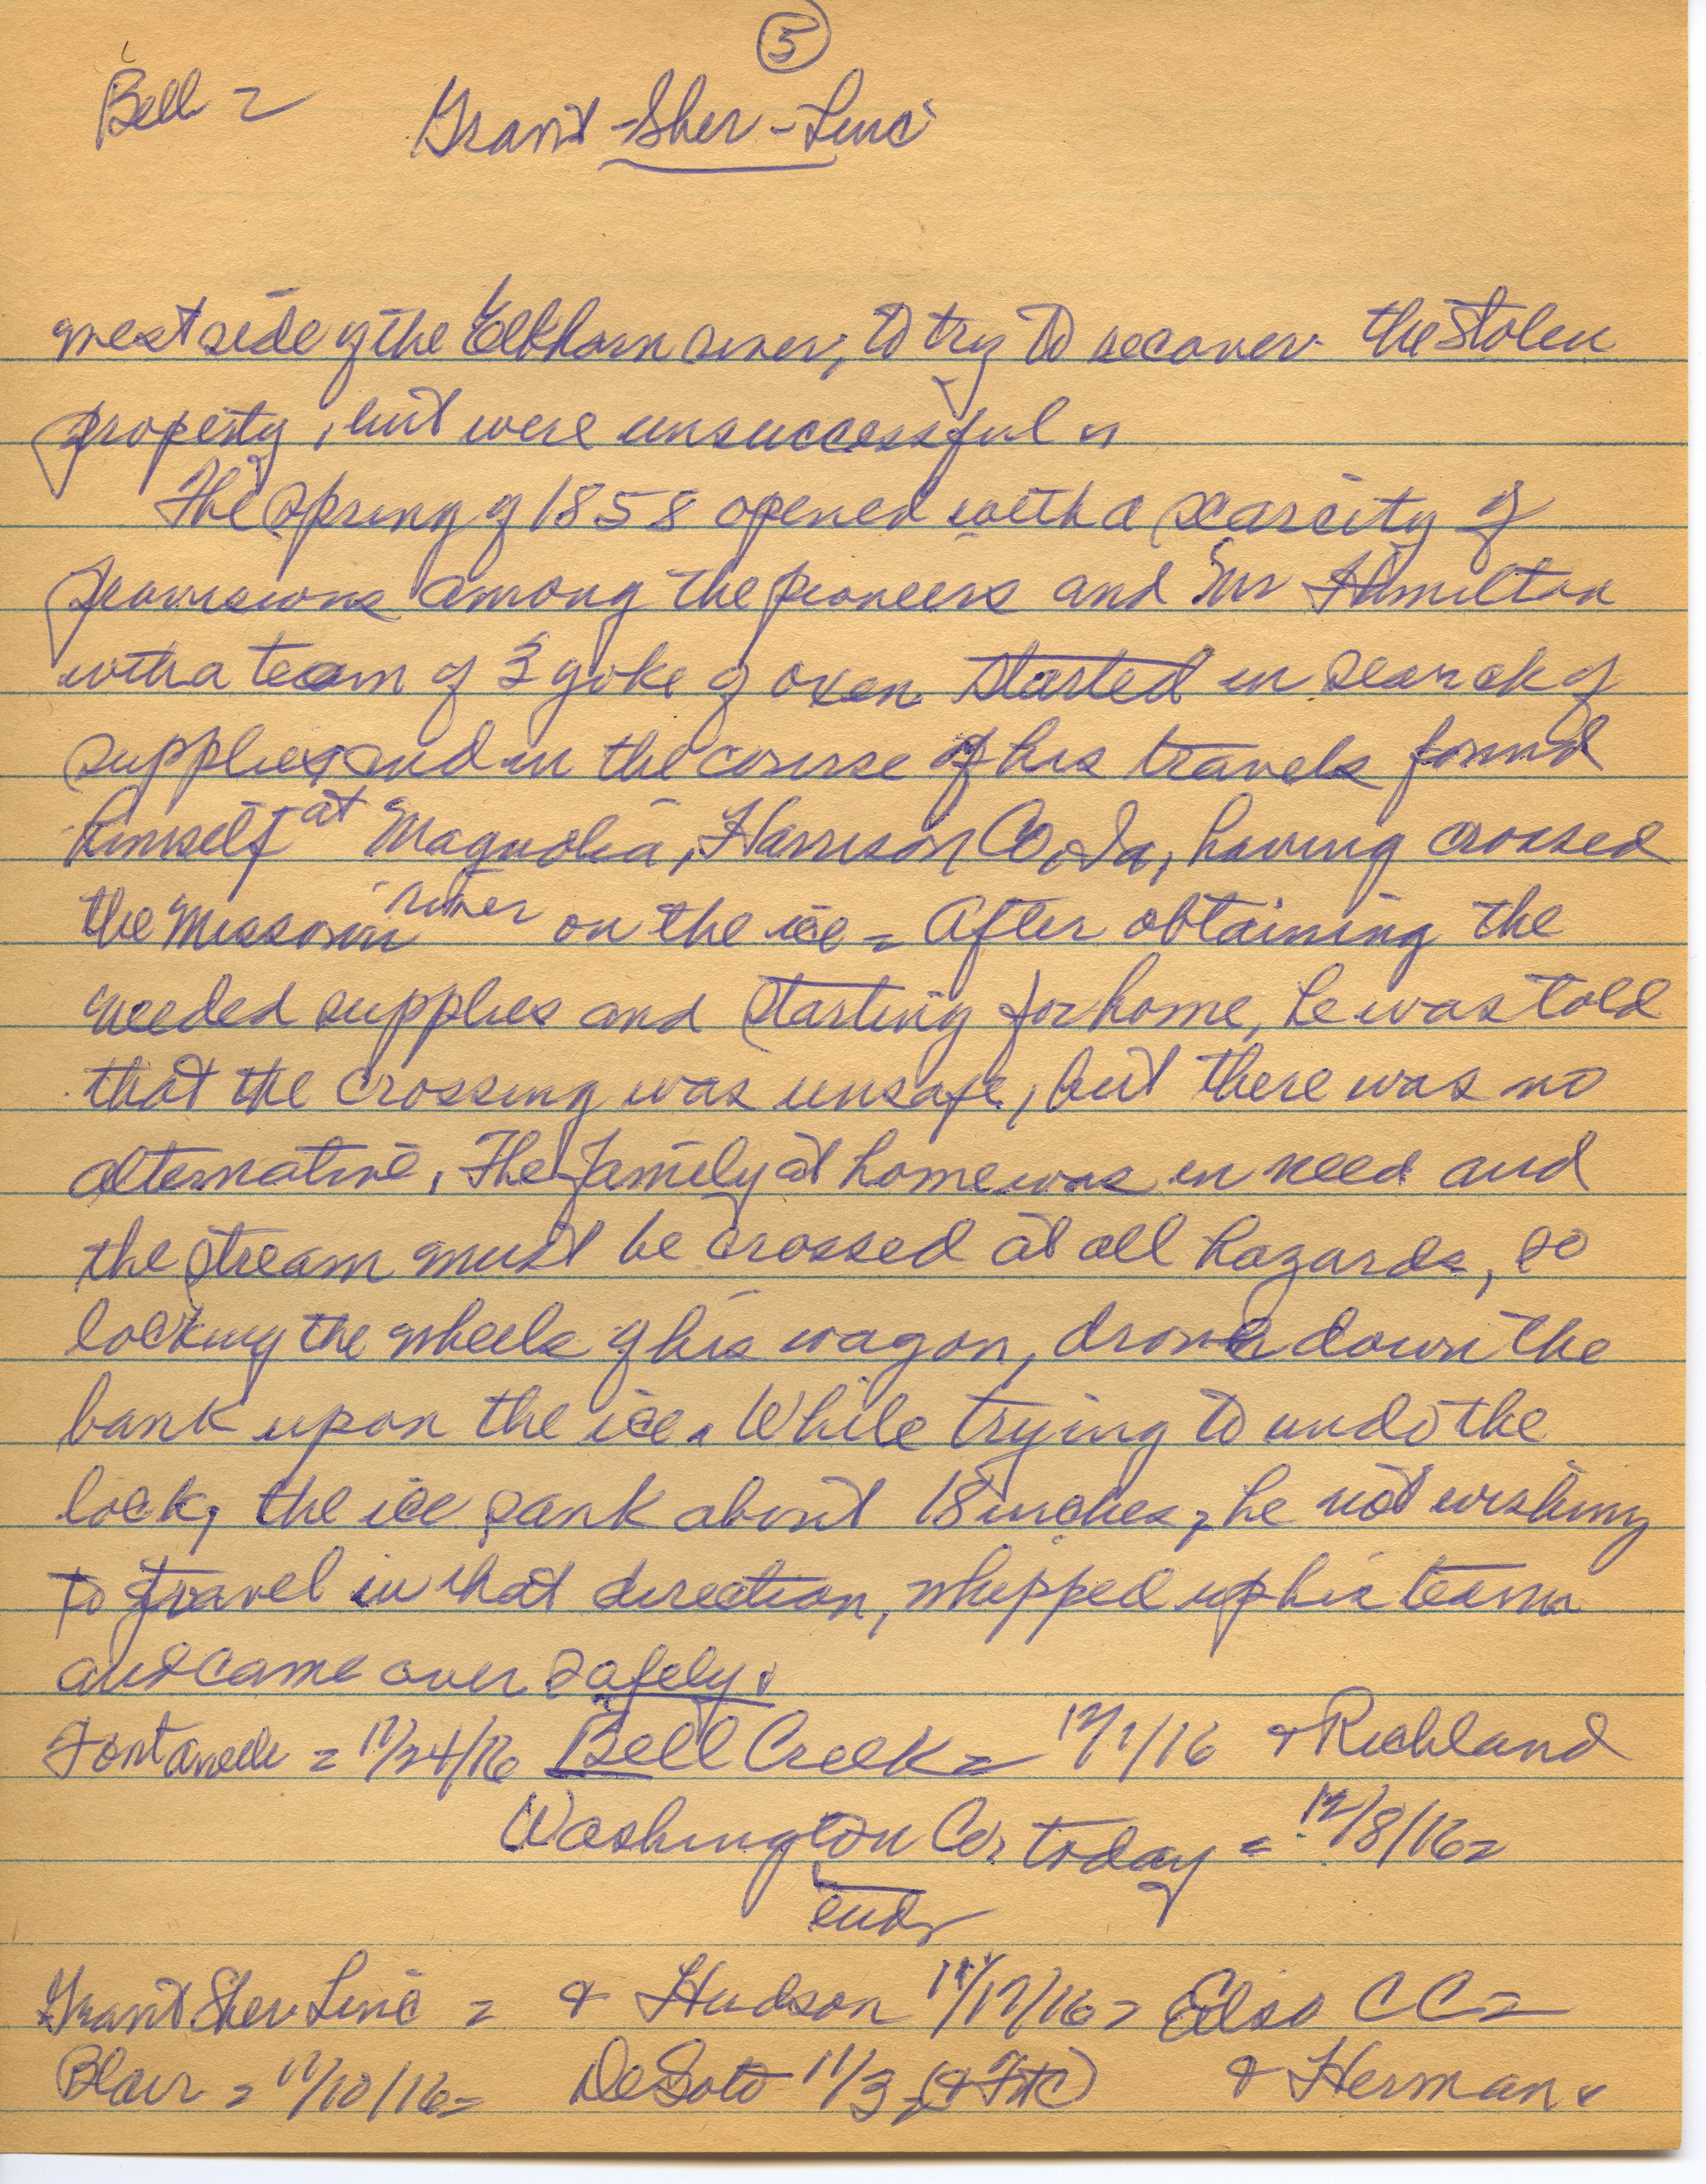 5
Bell = Grant-Sher-Linc
west side of the Elkhorn river, to try to recover the stolen
property, but were unsuccessful.
The Spring of 1858 opened with a scarcity of
provisions among the pioneers and Mr Hamilton
with a team of 3 yoke of oxen started in search of
supplies and in the course of his travels found
himself at Magnolia, Harrison Co, Ia, having crossed
the Missouri river on the ice = After obtaining the
needed supplies and starting for home, he was told
that the crossing was unsafe, but there was no
alternative, The family at home was in need and
the stream must be crossed at all hazards, so
locking the wheels of his wagon, drove down the
bank upon the ice. While trying to undo the
lock, the ice sank about 18 inches, he not wishing
to travel in that direction, whipped up his team
and came over safely.
Fontanelle = 11/24/16 Bell Creek = 12/1/16 & Richland
Washington Co. today = 12/8/16 =
end
Grant Sher Linc = & Hudson 11/17/16 = Also CC =
Blair = 11/10/16 = DeSoto 11/3 = (& Ft C) & Herman.